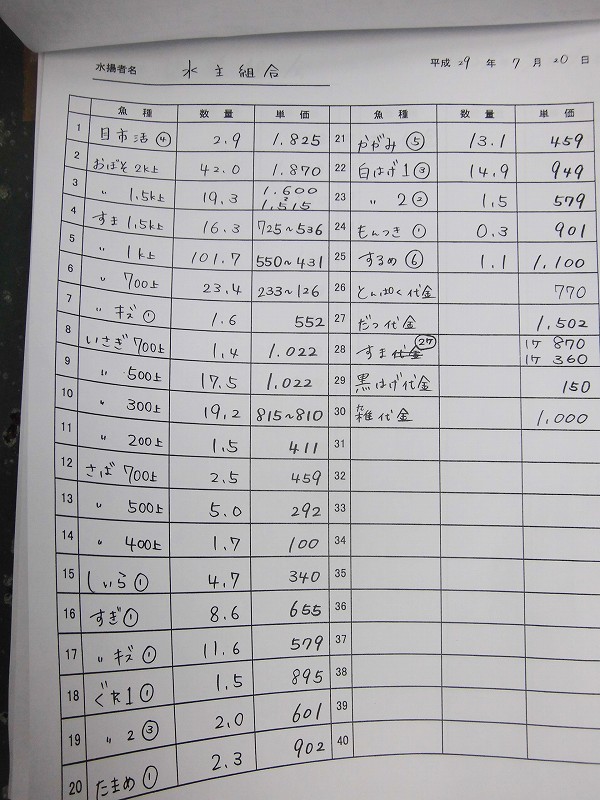 水揚者名 水主組合 平成 29 年 7 月 20 日
魚種 数量 単価 魚種 数量 単価
1 目市活④ 2.9 1.825 21 かがみ⑤ 13.1 459
2 おばそ 2k上 42.0 1.870 22 白はげ1③ 14.9 949
3 〃 1.5k上 19.3 1.600 ~ 1.515 23 〃 2② 1.5 579
4 すま 1.5k上 16.3 725~536 24 もんつき① 0.3 901
5 〃 1k上 101.7 550~431 25 するめ⑥ 1.1 1.100
6 〃 700上 23.4 233~126 26 代金 770
7 〃 キズ① 1.6 552 27 だつ代金 1,502
8 いさぎ 700上 1.4 1.022 28 すま 代金 1ケ 870 1ケ 360
9 〃 500上 17.5 1.022 29 黒はげ代金 150
10 〃 300上 19.2 815~810 30 雑代金 1,000
11 〃 200上 1.5 411 31
12 さば 700上 2.5 459 32
13 〃 500上 5.0 292 33
14 〃 400上 1.7 100 34
15 しいら① 4.7 340 35
16 すぎ① 8.6 655 36
17 〃 キズ① 11.6 579 37
18 ぐれ1① 1.5 895 38
19 〃 2③ 2.0 601 39
20 たまめ① 2.3 902 40